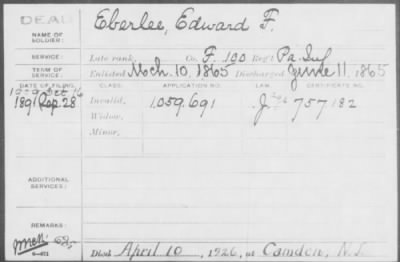 DEAD
Eberlee, Edward F.
NAME OF SOLDIER:
SERVICE: Late rank, Co. F. 100 Reg't Pa. Inf.
TERM OF SERVICE: Enlisted Mch. 10, 1865 Discharged June 11, 1865
DATE OF FILING. CLASS. APPLICATION NO. LAW. CERTIFICATE NO.
1891 28 Invalid, 1.059.691 757182
Widow,
Minor,
ADDITIONAL SERVICES:
REMARKS:
Died April 10, 1926, at Camden, N.J.